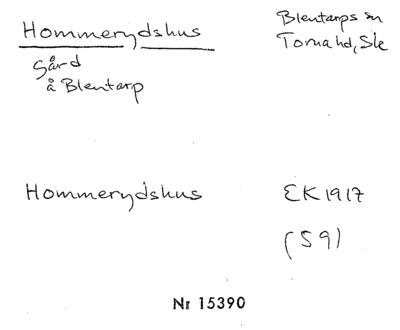 Hommerydshus
Blentarps sn
Torna hd, Sk
Gård
å Blentarp
Hommerydshus
EK 1917
(S9)
Nr 15390